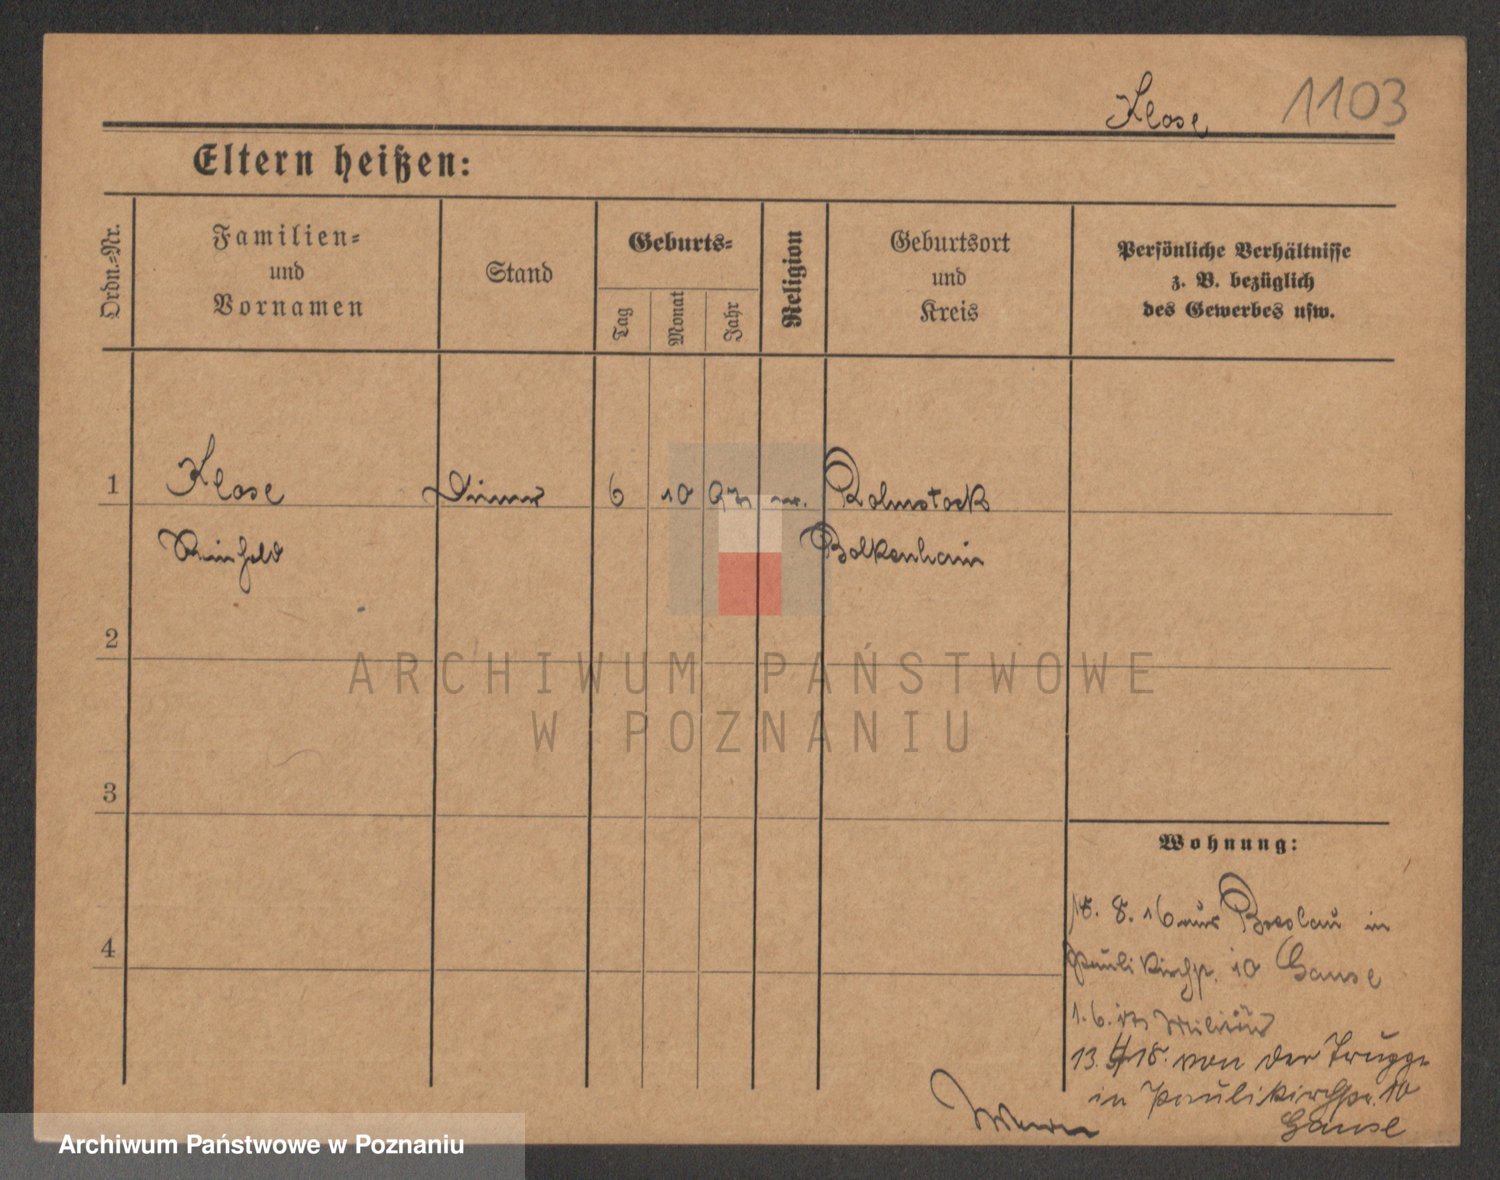 Klose 1103
Eltern heißen:
Ordn.-Nr.
Familien-
und
Vornamen
Stand
Geburts-
Tag
Monat
Jahr
Religion
Geburtsort
und
Kreis
Persönliche Verhältnisse
z. B. bezüglich
des Gewerbes usw.
1 Klose Diener 6 10 97 Rohnstock
Reinhold Bolkenhain
2
3
4
Wohnung:
18. 8. 16 aus Breslau in
Paulikirchpl. 10 Hause
1. 6. 17 Militär
13. 18. von der Truppe
in Paulikirchpl. 10
Hause
ARCHIWUM PAŃSTWOWE
W POZNANIU
Archiwum Państwowe w Poznaniu